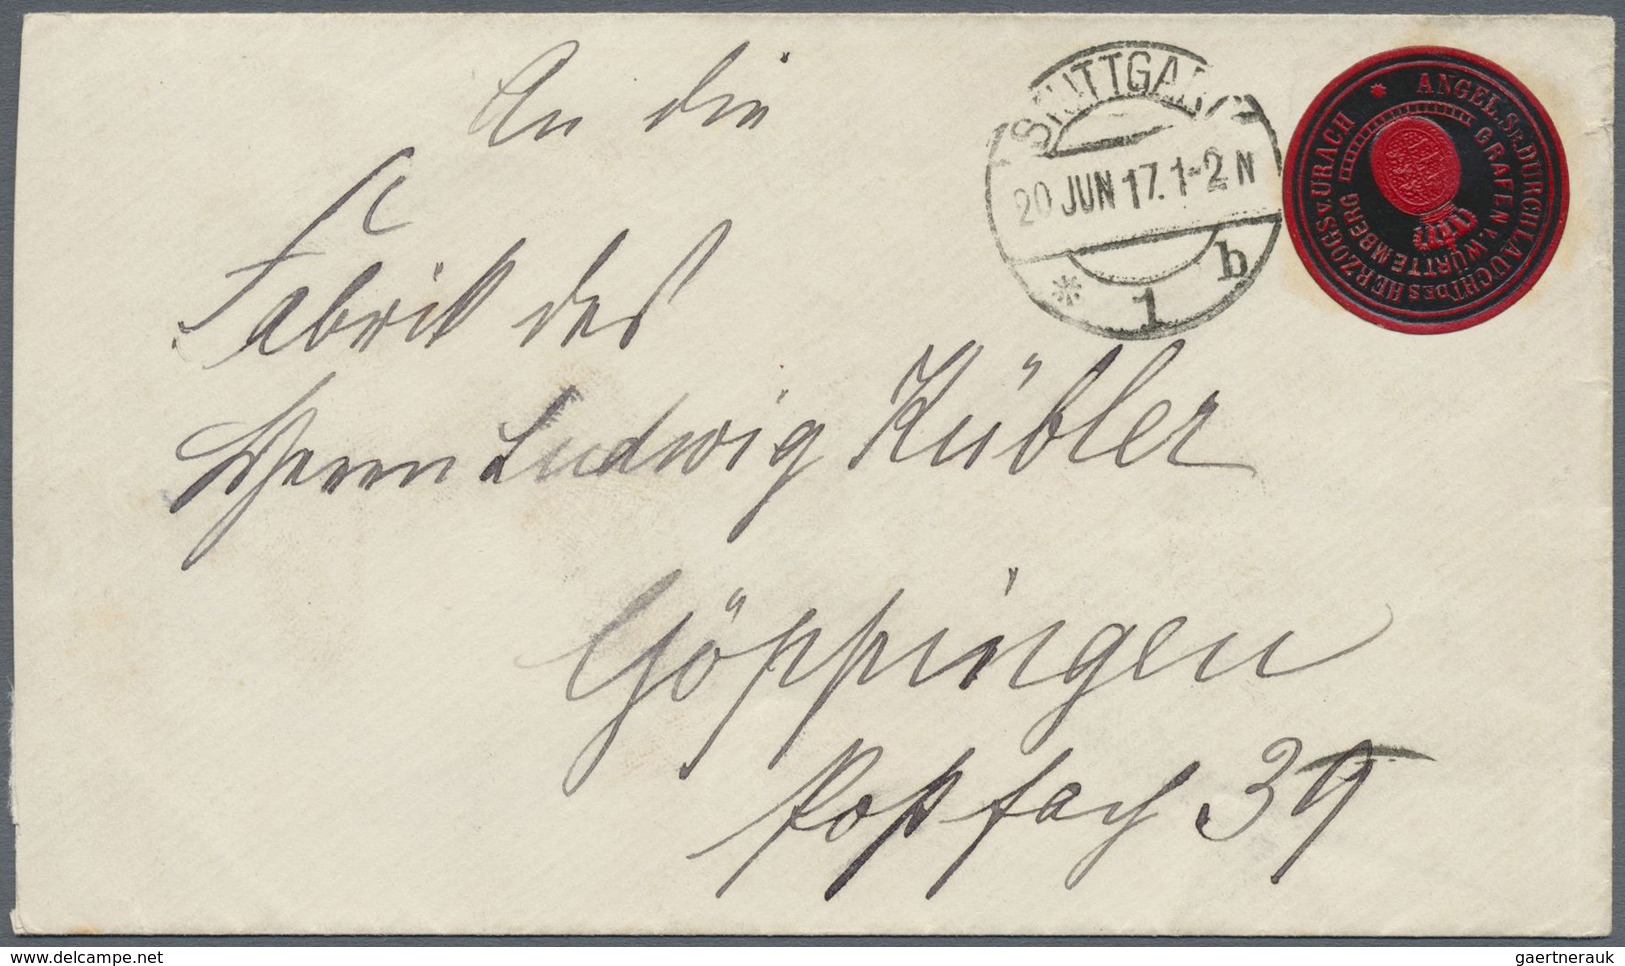 An die
Fabrik des
Herrn Ludwig Kübler
Göppingen
Postfach 39
STUTTGART
20 JUN 17. 1-2 N
* 1 b
* ANGEL. SR. DURCHLAUCHT DES HERZOGS V. URACH
GRAFEN V. WÜRTTEMBERG
delcampe.net
gaertnerauk